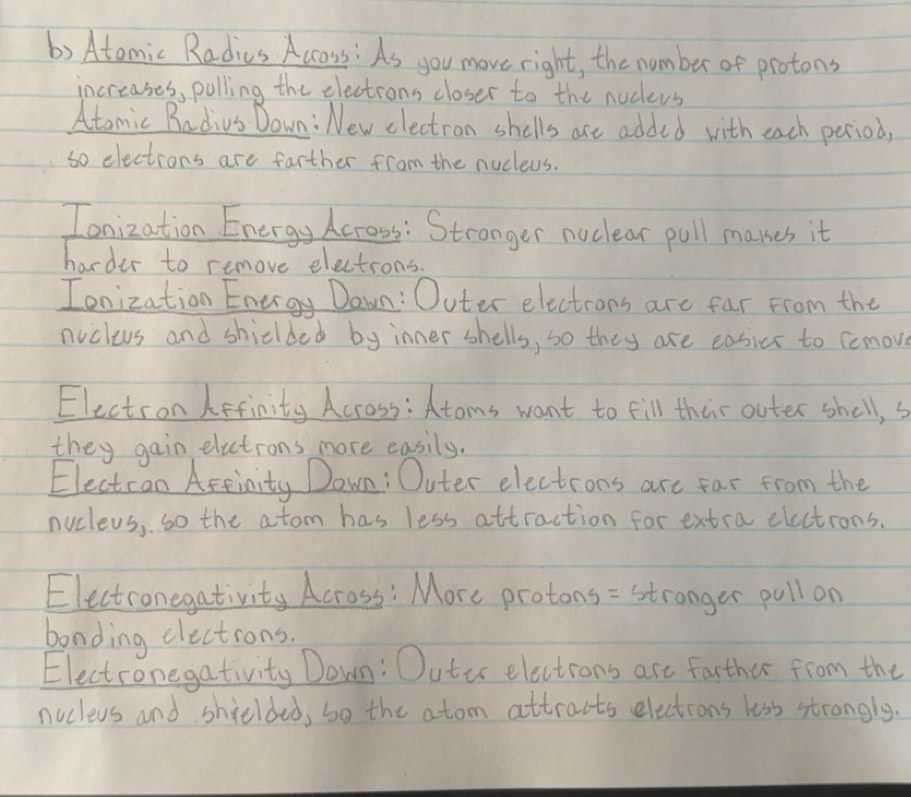 b) Atomic Radius Across: As you move right, the number of protons
increases, pulling the electrons closer to the nucleus
Atomic Radius Down: New electron shells are added with each period,
so electrons are farther from the nucleus.
Ionization Energy Across: Stronger nuclear pull makes it
harder to remove electrons.
Ionization Energy Down: Outer electrons are far from the
nucleus and shielded by inner shells, so they are easier to remove
Electron Affinity Across: Atoms want to fill their outer shell, s
they gain electrons more easily.
Electron Affinity Down: Outer electrons are far from the
nucleus, so the atom has less attraction for extra electrons.
Electronegativity Across: More protons = stronger pull on
bonding electrons.
Electronegativity Down: Outer electrons are farther from the
nucleus and shielded, so the atom attracts electrons less strongly.